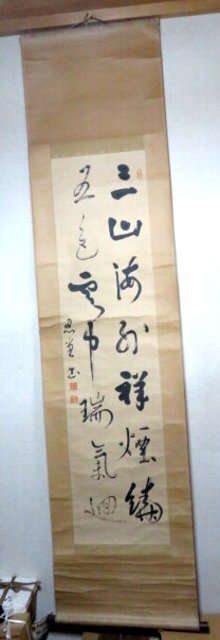 三山海外祥煙繞
五色雲中瑞氣迴